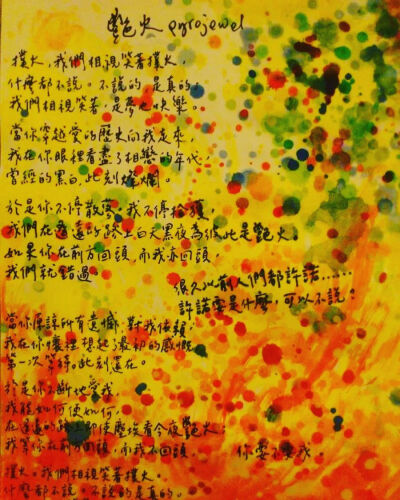 艷火 pyrojewel
撲火，我們相視笑著撲火，
什麼都不說。不說的是真的。
我們相視笑著，是夢也快樂。
當你穿越愛的歷史向我走來，
我在你眼裡看盡了相戀的年代
曾經的黑白，此刻燦爛。
於是你不停散落，我不停拾獲
我們在遙遠的路上白天黑夜為彼此是艷火。
如果你在前方回頭，而我亦回頭，
我們就錯過。
很久以前人們都許諾……
許諾要是什麼，可以不說？
當你原諒所有遺憾，對我依賴，
我在你懷裡想起最初的感慨
第一次等待。此刻還在。
於是你不斷地愛我，
我能如何便如何，
在遙遠的路上即使塵埃看今夜艷火
我等你在前方回頭，而我不回頭， 你要不要我。
撲火。我們相視笑著撲火。
什麼都不說。不說的是真的。